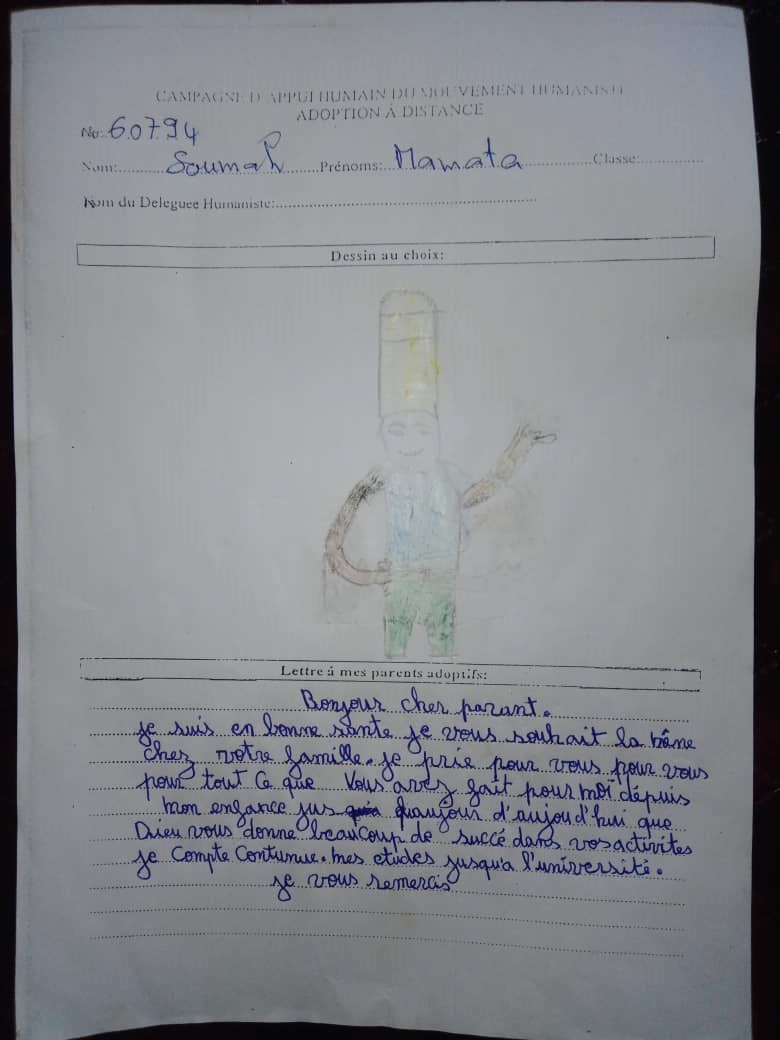 CAMPAGNE D'APPUI HUMAIN DU MOUVEMENT HUMANISTE
ADOPTION À DISTANCE
No: 60794
Nom: Soumah Prénoms: Mamata Classe:
Nom du Deleguee Humaniste:
Dessin au choix:
Lettre á mes parents adoptifs:
Bonjour cher parant.
je suis en bonne sante je vous souhait la même
chez votre famille. je prie pour vous pour vous
pour tout Ce que Vous avez fait pour moi dépuis
mon enfance jus d'aujoud'hui que
Dieu vous donne beaucoup de succé dans vos activites
je Compte Contunue. mes etudes jusqu'a l'université.
je vous remercis